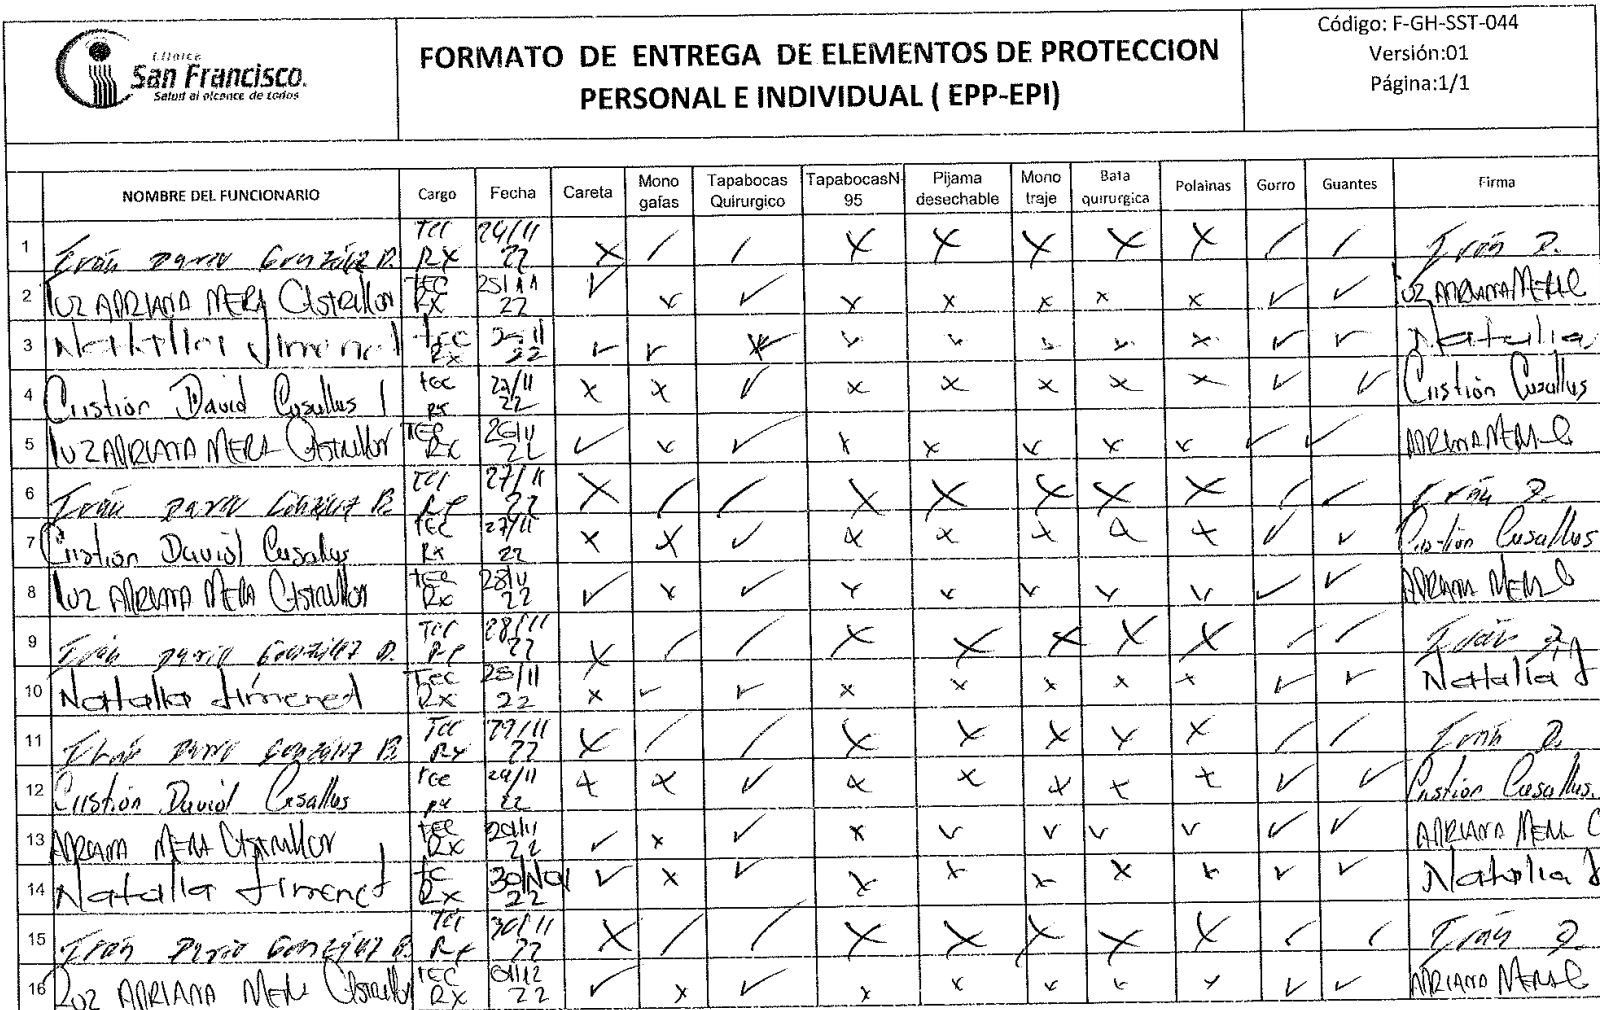 Clinica
San Francisco.
Salud al alcance de todos
FORMATO DE ENTREGA DE ELEMENTOS DE PROTECCION
PERSONAL E INDIVIDUAL ( EPP-EPI)
Código: F-GH-SST-044
Versión:01
Página:1/1
NOMBRE DEL FUNCIONARIO Cargo Fecha Careta Mono gafas Tapabocas Quirurgico TapabocasN-95 Pijama desechable Mono traje Bata quirurgica Polainas Gorro Guantes Firma
1 Iván Dario González B. Tec RX 24/11 22 Iván D.
2 LUZ ADRIANA MERA Castrillon TEC RX 25/11 22 LUZ ADRIANA MERA C
3 Natalia Jimenez tec Rx 22 Natalia
4 Cristian David Casallas tec RX 22 Cristian Casallas
5 LUZ ADRIANA MERA Castrillon TEC RX 26/11 22 ADRIANA MERA C
6 Iván Dario González B. Tec RX 27/11 22 Iván D.
7 Cristian David Casallas TEC RX 27/11 22 Cristian Casallas
8 LUZ ADRIANA MERA Castrillon tec RX 28/11 22 ADRIANA MERA C
9 Iván Dario González B. Tec RX 28/11 22 Iván D.
10 Natalia Jimenez Tec RX 22 Natalia J
11 Iván Dario González B. Tec RX 29/11 22 Iván D.
12 Cristian David Casallas Tec RX 29/11 22 Cristian Casallas.
13 ADRIANA MERA Castrillon tec RX 29/11 22 ADRIANA MERA C
14 Natalia Jimenez tc RX 30/Nov 22 Natalia J
15 Iván Dario González B. Tec RX 30/11 22 Iván D.
16 Luz ADRIANA MERA Castrillon TEC RX 01/12 22 ADRIANA MERA C